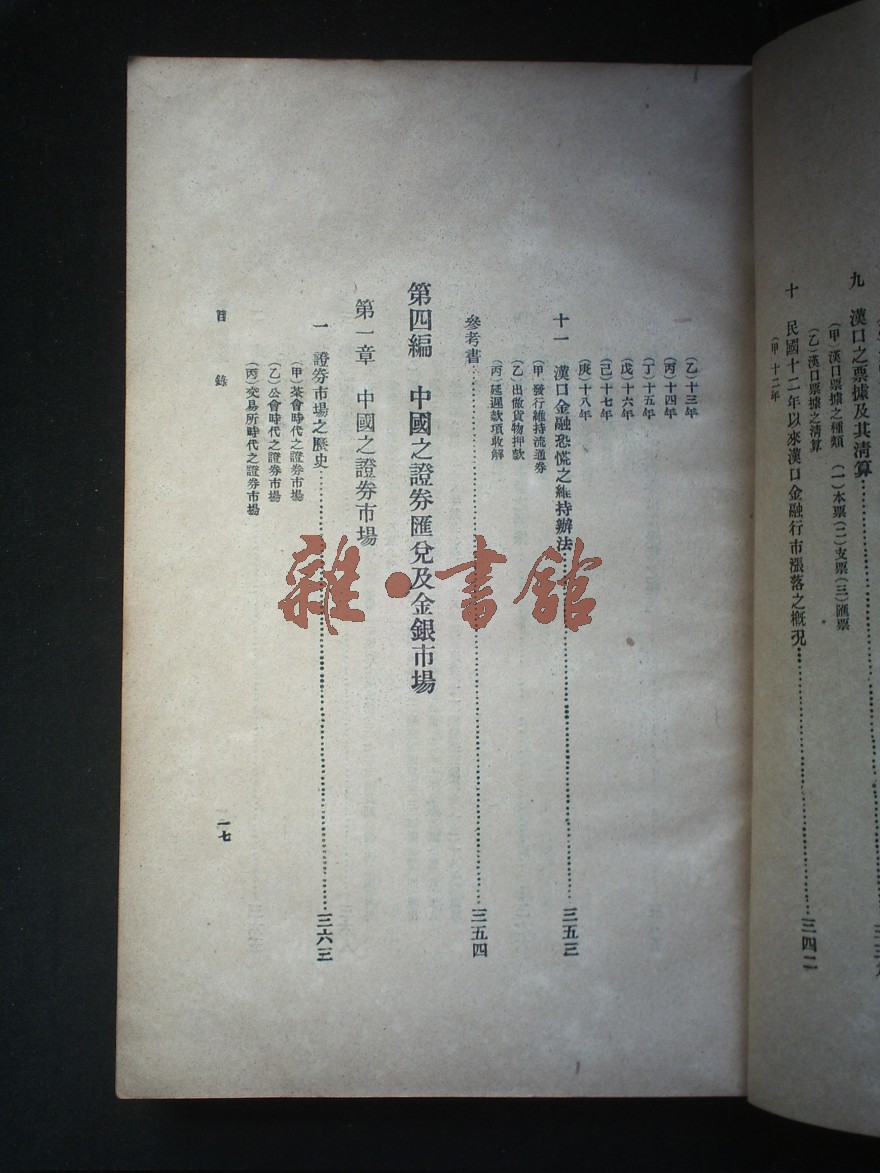 九　漢口之票據及其清算
(甲)漢口票據之種類　(一)本票(二)支票(三)匯票
(乙)漢口票據之清算
十　民國十二年以來漢口金融行市漲落之概況………三四二
(甲)十二年
(乙)十三年
(丙)十四年
(丁)十五年
(戊)十六年
(己)十七年
(庚)十八年
十一　漢口金融恐慌之維持辦法………三五三
(甲)發行維持流通券
(乙)出做貨物押款
(丙)延遲款項收解
參考書………三五四
第四編　中國之證券匯兌及金銀市場
第一章　中國之證券市場
一　證券市場之歷史………三六三
(甲)茶會時代之證券市場
(乙)公會時代之證券市場
(丙)交易所時代之證券市場
目錄
一七
雜·書館